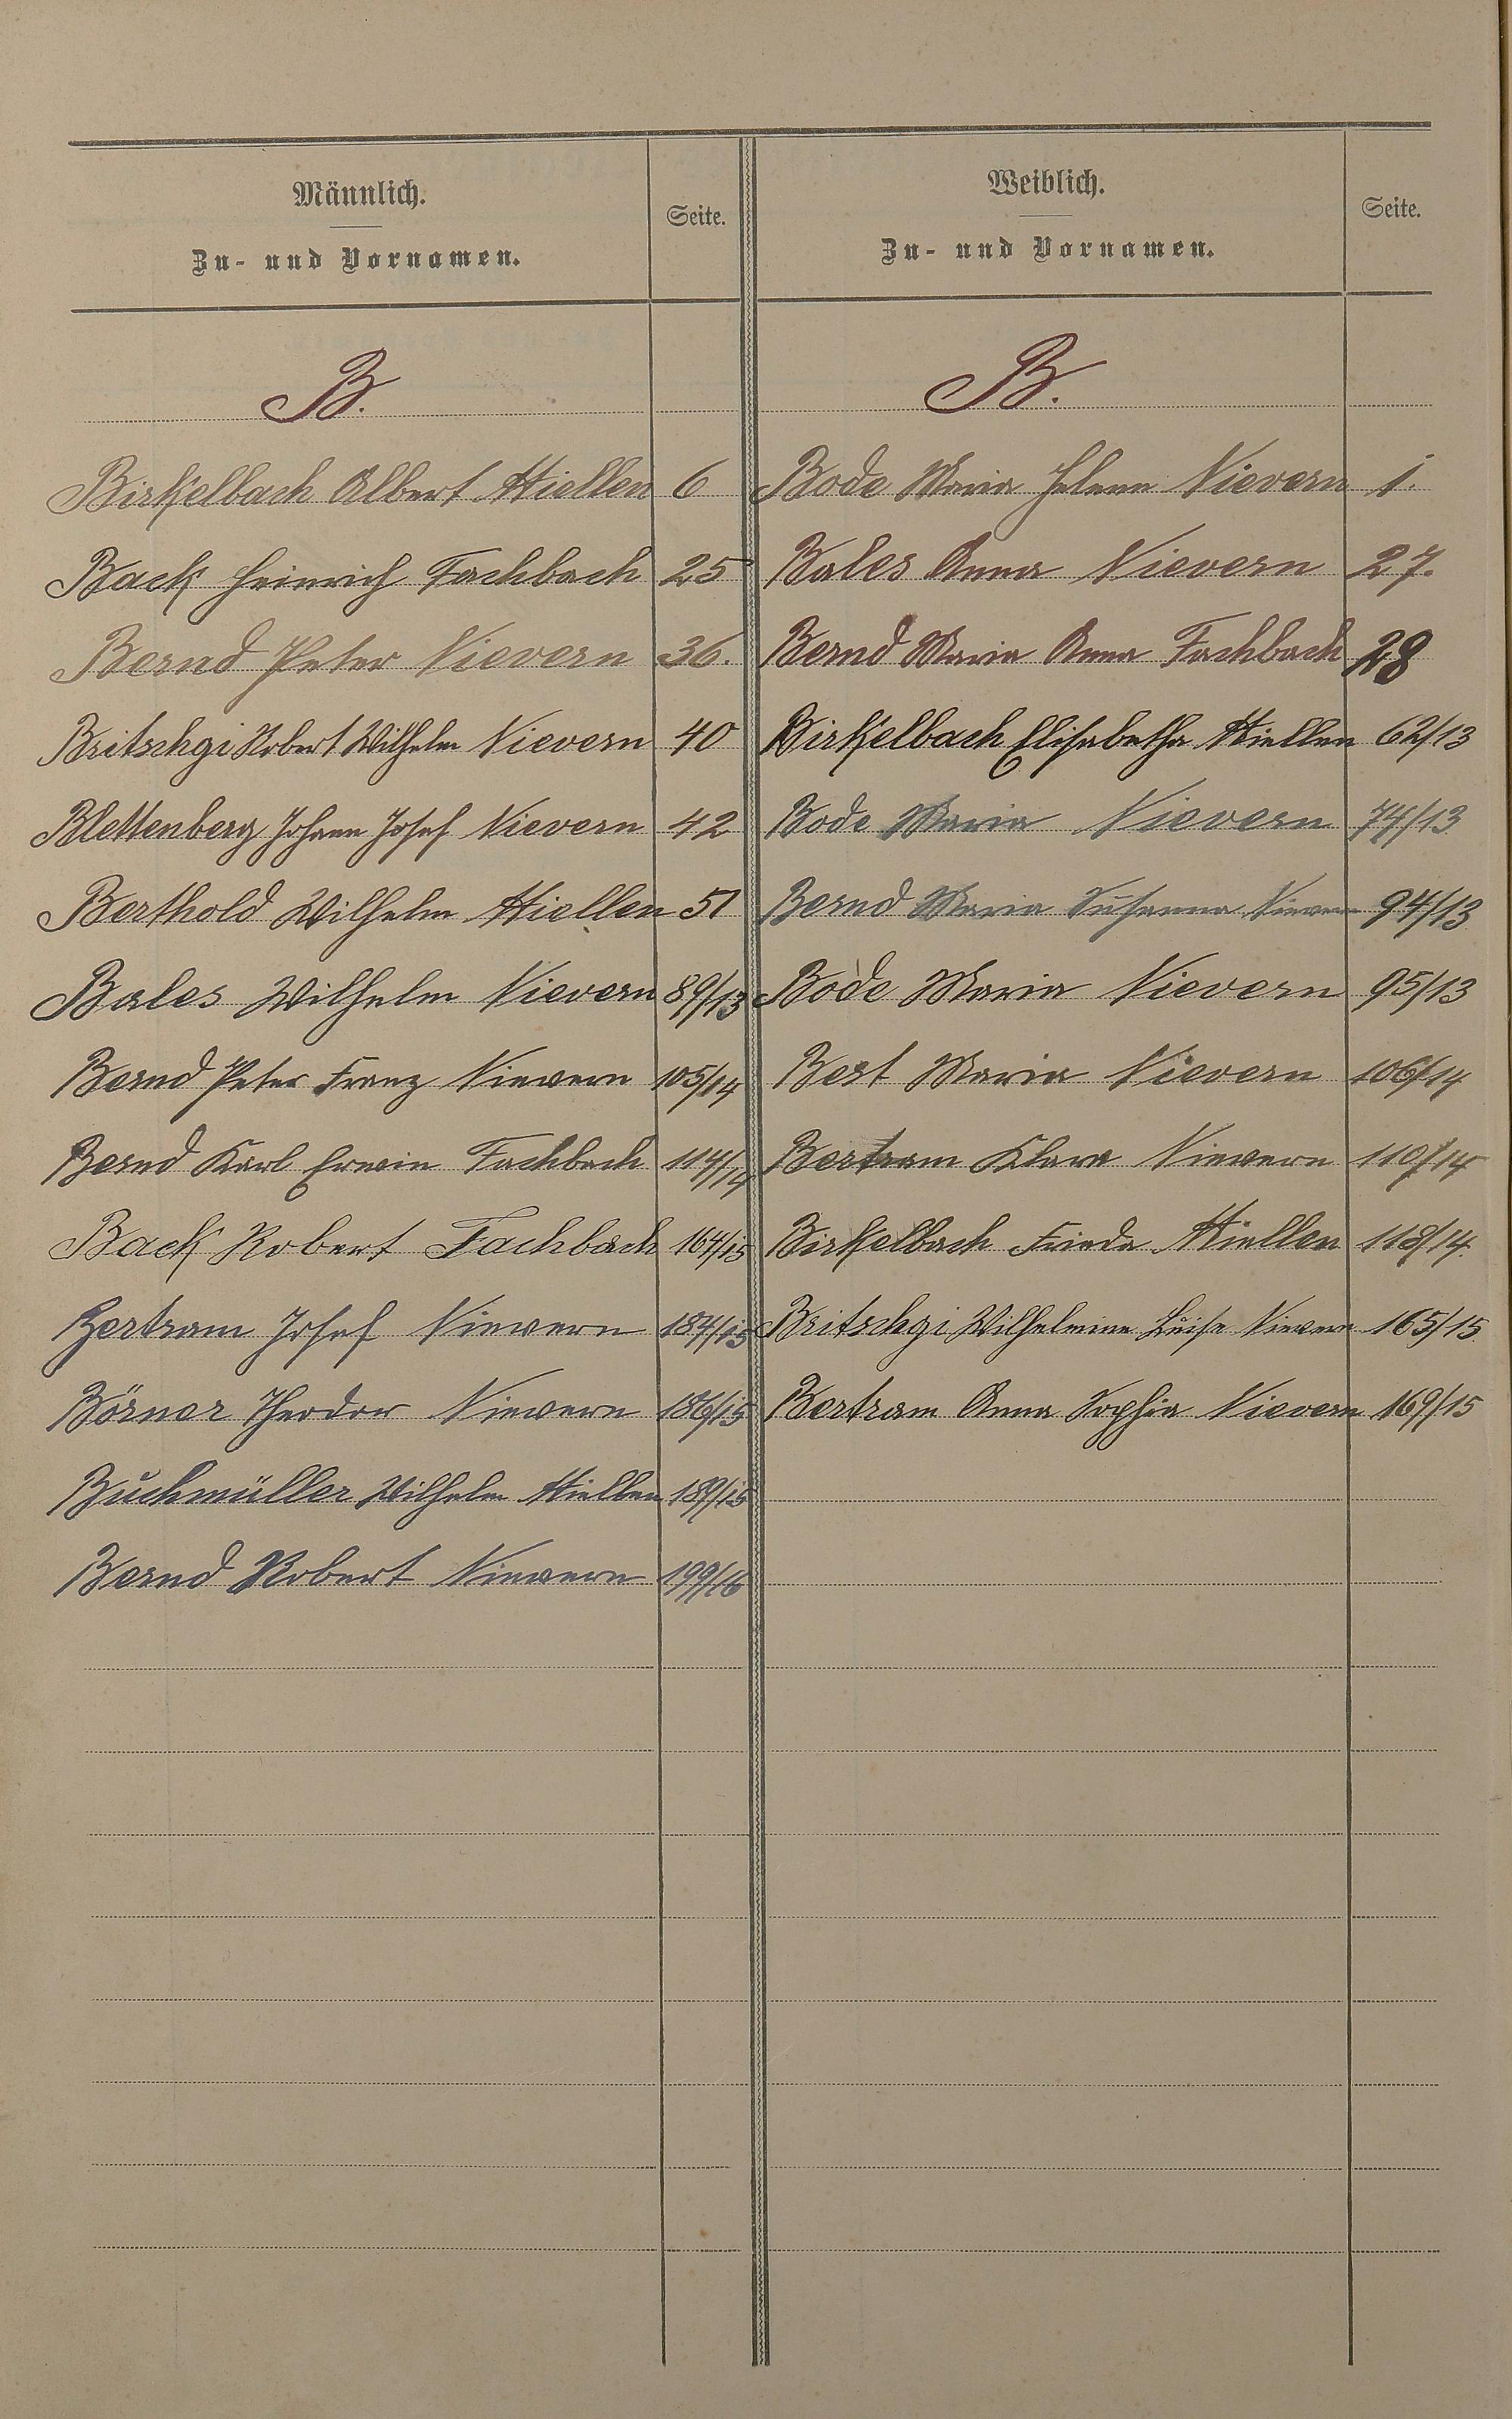 Männlich.
Zu- und Vornamen.
Seite.
Weiblich.
Zu- und Vornamen.
Seite.
B.
Birkelbach Albert Miellen 6
Back Heinrich Fachbach 25
Bernd Peter Nievern 36.
Britschgi Robert Wilhelm Nievern 40
Blettenberg Johann Josef Nievern 42
Berthold Wilhelm Miellen 51
Bales Wilhelm Nievern 89/13
Bernd Peter Franz Nievern 105/14
Bernd Karl Erwin Fachbach 114/14
Back Robert Fachbach 164/15
Bertram Josef Nievern 184/15
Börner Theodor Nievern 186/15
Buchmüller Wilhelm Miellen 189/15
Bernd Robert Nievern 199/16
B.
Bode Maria Helena Nievern 1.
Bales Anna Nievern 27.
Bernd Maria Anna Fachbach 28
Birkelbach Elisabetha Miellen 62/13
Bode Maria Nievern 74/13
Bernd Maria Susanna Nievern 94/13
Bode Maria Nievern 95/13
Best Maria Nievern 106/14
Bertram Klara Nievern 110/14
Birkelbach Frieda Miellen 118/14.
Britschgi Wilhelmine Luise Nievern 165/15.
Bertram Anna Sophia Nievern 169/15